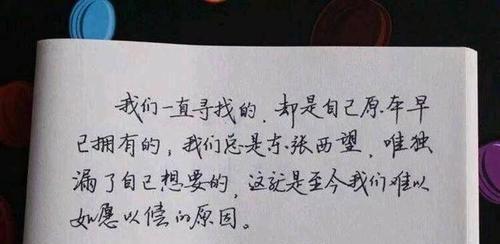 我们一直寻找的，却是自己原本早
已拥有的，我们总是东张西望，唯独
漏了自己想要的，这就是至今我们难以
如愿以偿的原因。